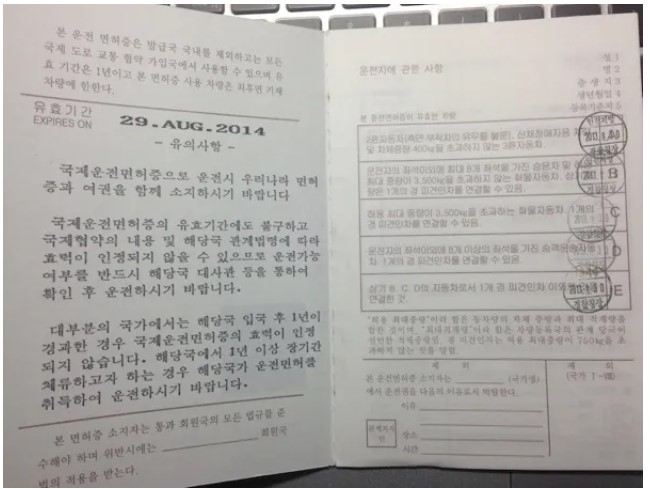 본 운전 면허증은 발급국 국내를 제외하고는 모든
국제 도로 교통 협약 가입국에서 사용할 수 있으며 유
효 기간은 1년이고 본 면허증 사용 차량은 최후면 기재
차량에 한한다.
유효기간
EXPIRES ON
29.AUG.2014
- 유의사항 -
국제운전면허증으로 운전시 우리나라 면허
증과 여권을 함께 소지하시기 바랍니다
국제운전면허증의 유효기간에도 불구하고
국제협약의 내용 및 해당국 관계법령에 따라
효력이 인정되지 않을 수 있으므로 운전가능
여부를 반드시 해당국 대사관 등을 통하여
확인 후 운전하시기 바랍니다.
대부분의 국가에서는 해당국 입국 후 1년이
경과한 경우 국제운전면허증의 효력이 인정
되지 않습니다. 해당국에서 1년 이상 장기간
체류하고자 하는 경우 해당국가 운전면허를
취득하여 운전하시기 바랍니다.
본 면허증 소지자는 통과 회원국의 모든 법규를 준
수해야 하며 위반시에는 회원국
법의 적용을 받는다.
운전자에 관한 사항
성 1
명 2
출 생 지 3
생년월일 4
등록기준지 5
본 운전면허증의 유효한 차량
2륜자동차(측면 부착차의 유무를 불문), 신체장애자용 차량
및 차체중량 400kg을 초과하지 않는 3륜자동차.
운전자의 좌석이외에 최대 8개 좌석을 가진 승용차 및
최대 중량이 3,500kg을 초과하지 않는 화물자동차. 상기
량은 1개의 경 피견인차를 연결할 수 있음.
B
허용 최대 중량이 3,500kg을 초과하는 화물자동차. 1개의
경 피견인차를 연결할 수 있음.
C
운전자의 좌석이외에 8개 이상의 좌석을 가진 승객운송자동
차. 1개의 경 피견인차를 연결할 수 있음.
D
상기 B, C, D의 자동차로서 1개 경 피견인차 이외의
연결한 것.
E
"허용 최대중량"이라 함은 동차량의 자체 중량과 최대 적재량을
합한 것이며, "최대적재량"이라 함은 차량등록국의 관계 당국이
선언한 적재중량임. 경 피견인차는 허용 최대중량이 750kg을 초
과하지 않는 것을 말함.
제 외
본 운전면허증 소지자는 (국가명)
에서 운전권을 다음의 이유로서 박탈한다.
이유
장소
시간
관계자직인
제 외
(국가 1~